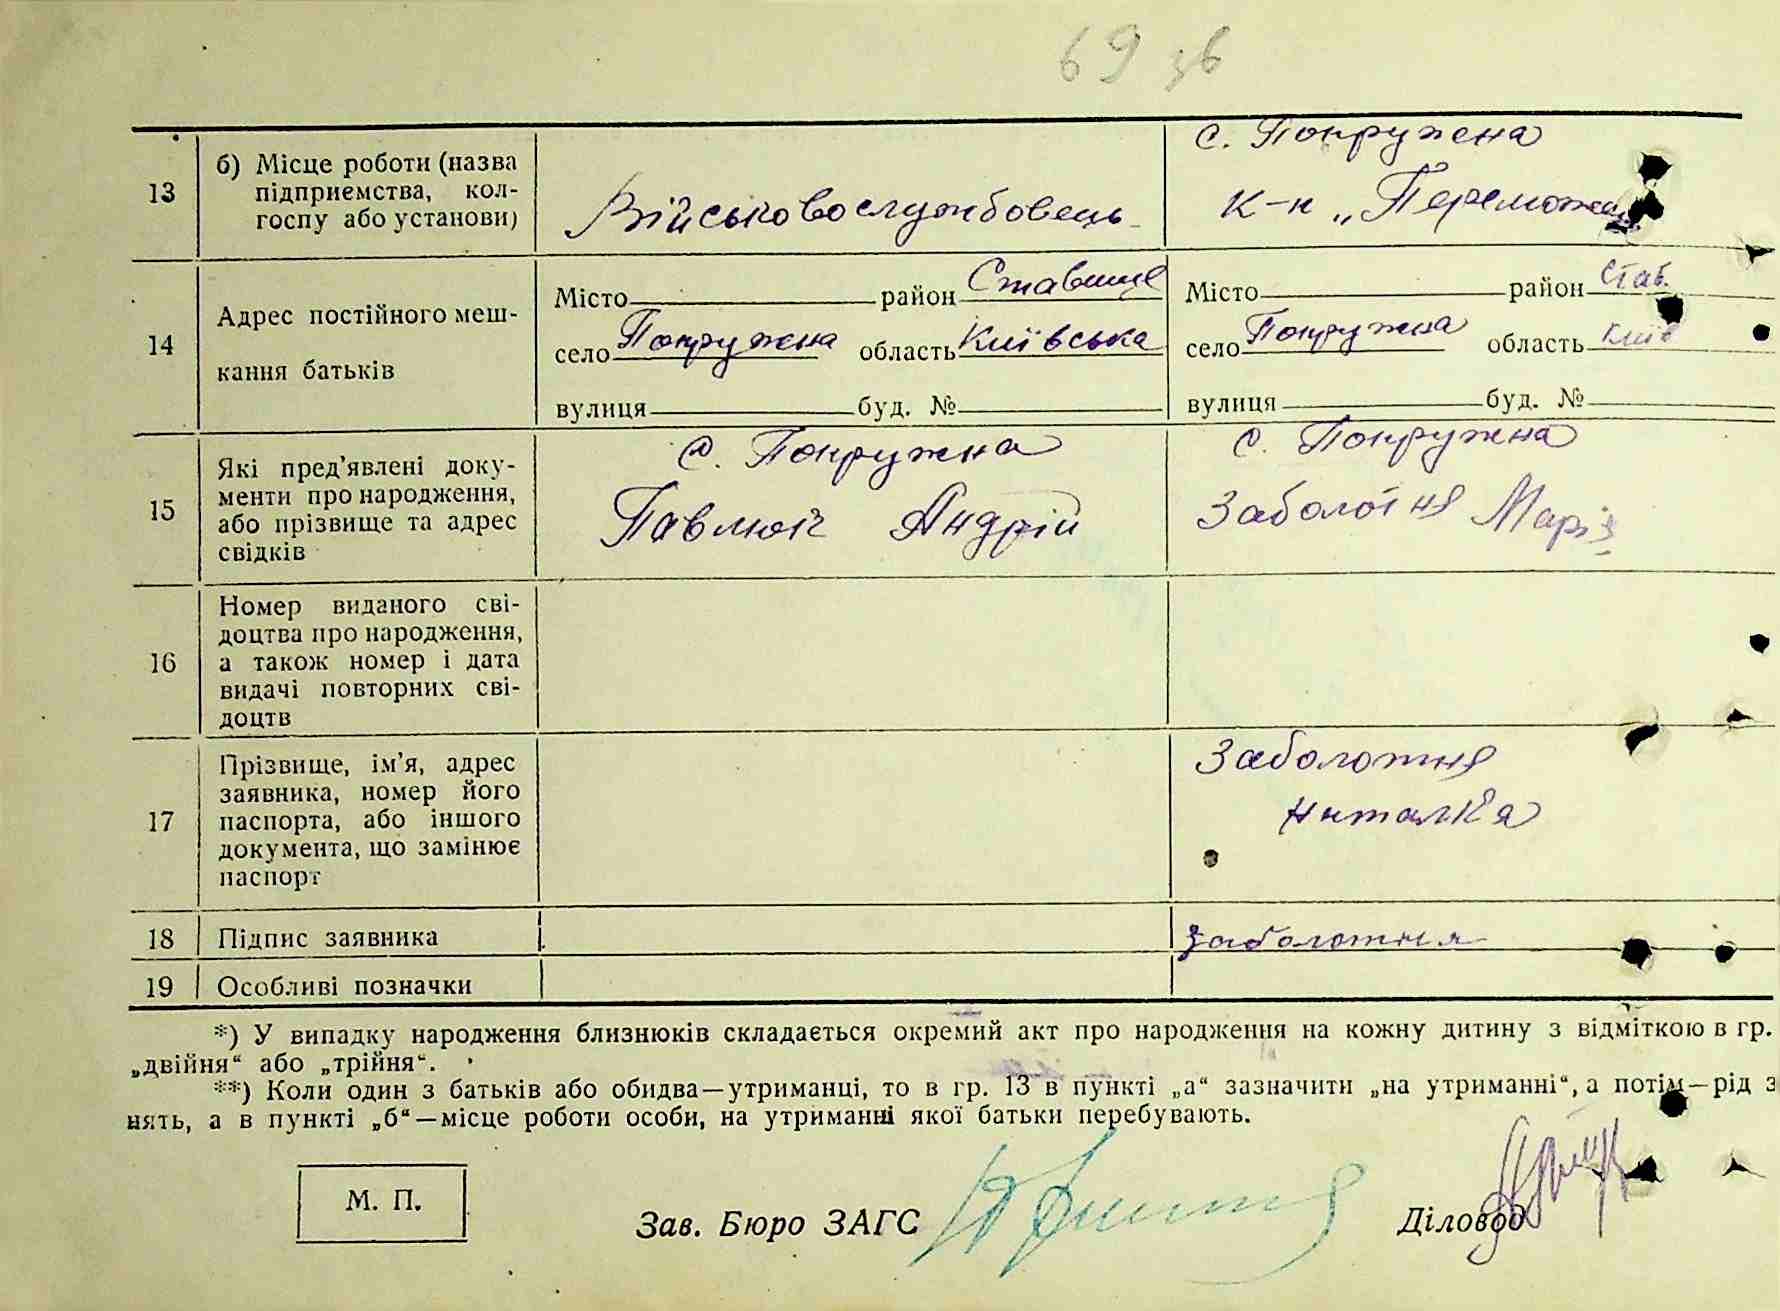 69 зв
13
б) Місце роботи (назва
підприємства, кол-
госпу або установи)
Військовослужбовець
с. Покружена
к-п „Переможець
14
Адрес постійного меш-
кання батьків
Місто район Ставище
село Покружена область Київська
вулиця буд. №
Місто район Став.
село Покружена область Київ
вулиця буд. №
15
Які пред’явлені доку-
менти про народження,
або прізвище та адрес
свідків
с. Покружна
Павлюк Андрій
с. Покружна
Заболотня Марія
16
Номер виданого сві-
доцтва про народження,
а також номер і дата
видачі повторних сві-
доцтв
17
Прізвище, ім’я, адрес
заявника, номер його
паспорта, або іншого
документа, що замінює
паспорт
Заболотня
Наталка
18
Підпис заявника
Заболотня
19
Особливі позначки
*) У випадку народження близнюків складається окремий акт про народження на кожну дитину з відміткою в гр.
„двійня“ або „трійня“.
**) Коли один з батьків або обидва—утриманці, то в гр. 13 в пункті „а“ зазначити „на утриманні“, а потім—рід з
нять, а в пункті „б“—місце роботи особи, на утриманні якої батьки перебувають.
М. П.
Зав. Бюро ЗАГС
Діловод